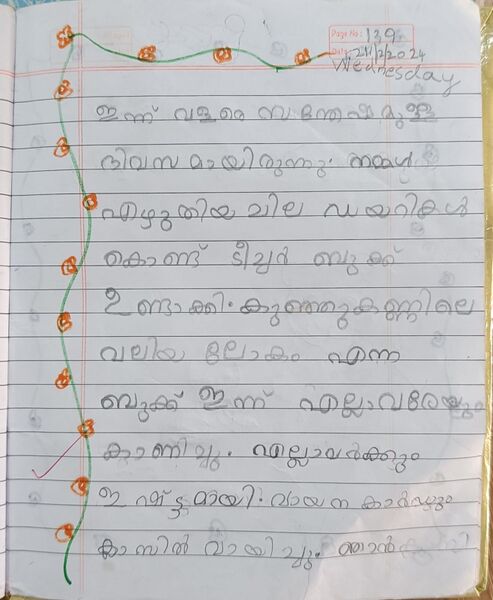 Page No: 139
Date: 21/2/2024
Wednesday
ഇന്ന് വളരെ സന്തോഷമുള്ള
ദിവസമായിരുന്നു. നമ്മൾ
എഴുതിയ ചില ഡയറികൾ
കൊണ്ട് ടീച്ചർ ബുക്ക്
ഉണ്ടാക്കി. കുഞ്ഞുകണ്ണിലെ
വലിയ ലോകം എന്ന
ബുക്ക് ഇന്ന് എല്ലാവരേയും
കാണിച്ചു. എല്ലാവർക്കും
ഇഷ്ട്ടമായി. വായന കാർഡും
ക്ലാസിൽ വായിച്ചു. ഞാൻ